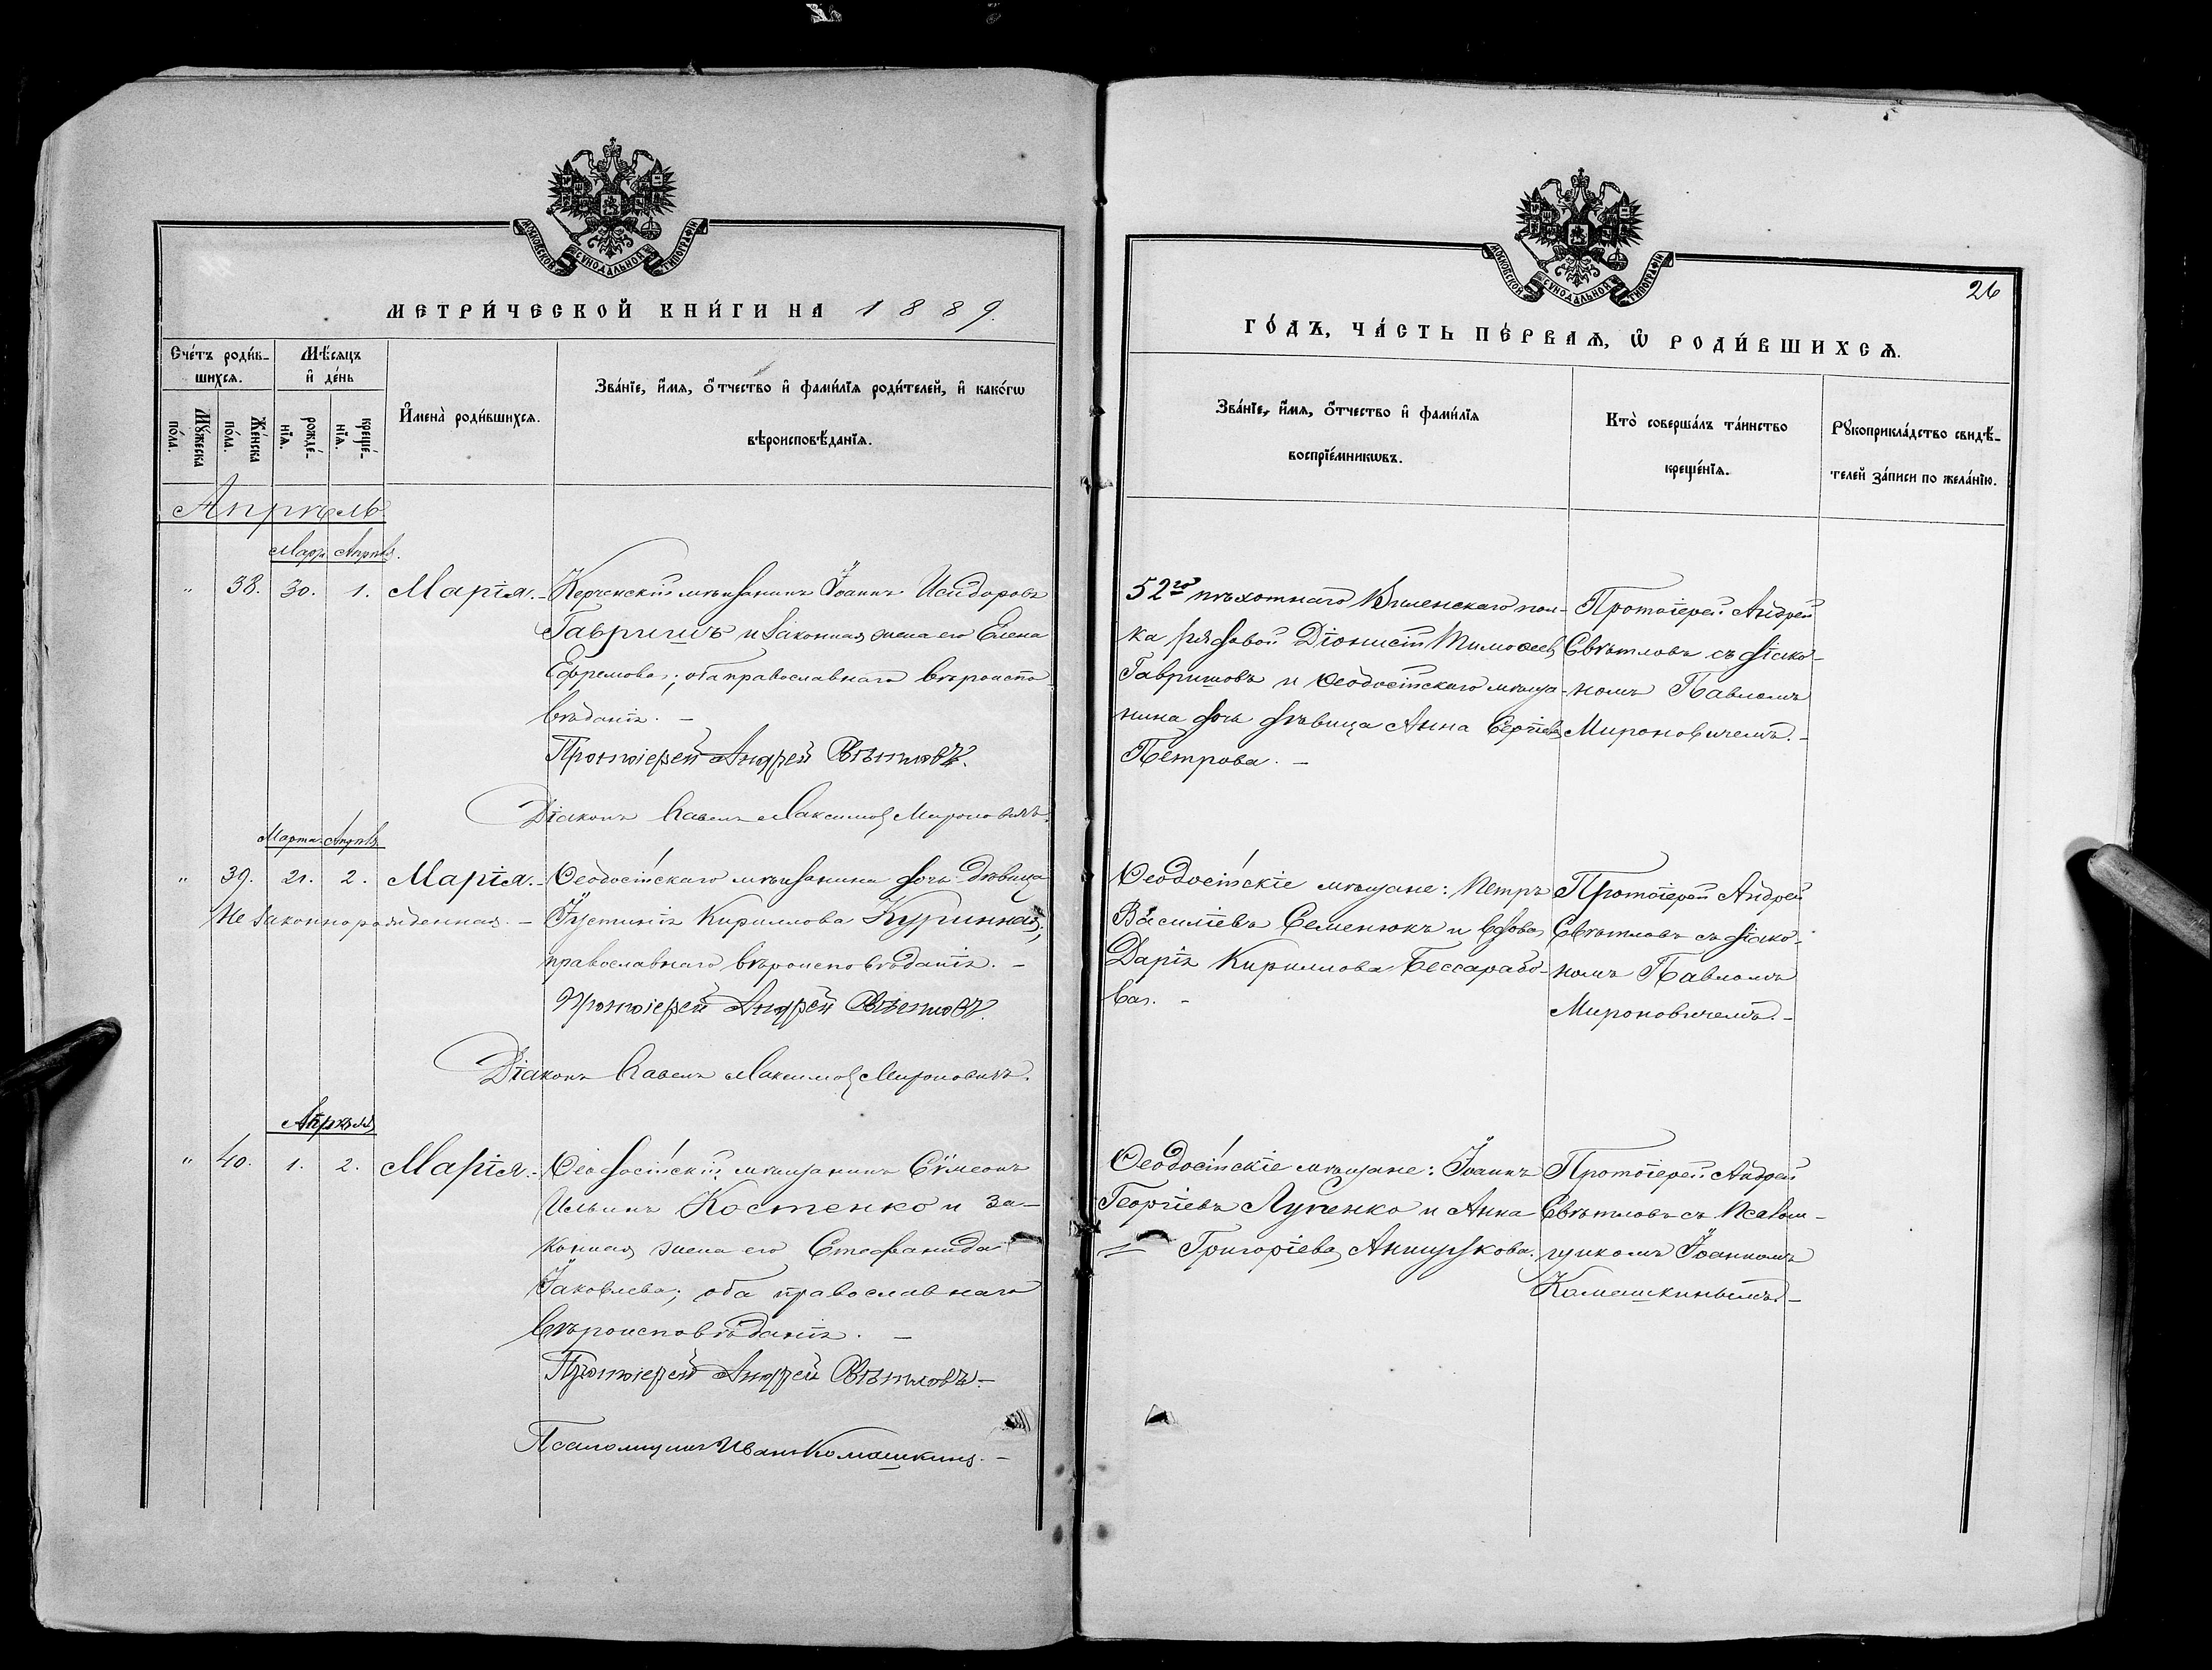 МОСКОВСКОЙ СѴНОДАЛЬНОЙ ТИПОГРАФІИ
МЕТРИ́ЧЕСКОЙ КНИ́ГИ НА 1889.
Сче́тъ роди́в-
шихсѧ.
Мѣ́сяцъ
и҆ де́нь
Мꙋ́жеска
по́ла.
Же́нска
по́ла.
рожде́-
нїѧ.
креще́-
нїѧ.
И҆мена̀ роди́вшихсѧ.
Зва́нїе, и҆́мѧ, ѻ҆́тчество и҆ фами́лїѧ роди́телей, и҆ како́гѡ
вѣроисповѣ́данїѧ.
Апрѣль.
Мар. Апрѣл.
" 38. 30. 1. Марія. - Керченскій мѣщанинъ Іоаннъ Исидоровъ
Гавришъ и законная жена его Елена
Ефремова; оба православнаго вѣроиспо-
вѣданія. -
Протоіерей Андрей Свѣтловъ.
Діаконъ Павелъ Максимовъ Мироновичъ.
Марта. Апрѣл.
" 39. 21. 2. Марія. - Ѳеодосійскаго мѣщанина дочь дѣвица
Незаконнорожденная. - Іустинія Кириллова Куринная;
православнаго вѣроисповѣданія. -
Протоіерей Андрей Свѣтловъ.
Діаконъ Павелъ Максимовъ Мироновичъ.
Апрѣля
" 40. 1. 2. Марія. - Ѳеодосійскій мѣщанинъ Сѵмеонъ
Ильинъ Костенко и за-
конная жена его Стефанида
Іаковлева; оба православнаго
вѣроисповѣданія. -
Протоіерей Андрей Свѣтловъ. -
Псаломщикъ Иванъ Комашкинъ. -
МОСКОВСКОЙ СѴНОДАЛЬНОЙ ТИПОГРАФІИ
26
ГО́ДЪ, ЧА́СТЬ ПЕ́РВАѦ, Ѡ҆ РОДИ́ВШИХСѦ.
Зва́нїе, и҆́мѧ, ѻ҆́тчество и҆ фами́лїѧ
воспрїе́мникѡвъ.
Кто̀ соверша́лъ та́инство
креще́нїѧ.
Рꙋкоприкла́дство свидѣ́-
телей за́писи по жела́нїю.
52го пѣхотнаго Виленскаго пол-
ка рядовой Діонисій Тимоѳеевъ
Гавришовъ и Ѳеодосійскаго мѣща-
нина дочь дѣвица Анна Сергіева
Петрова. -
Протоіерей Андрей
Свѣтловъ съ діако-
номъ Павломъ
Мироновичемъ. -
Ѳеодосійскіе мѣщане: Петръ
Василіевъ Семенюкъ и вдова
Дарія Кириллова Бессарабо-
ва. -
Протоіерей Андрей
Свѣтловъ съ діако-
номъ Павломъ
Мироновичемъ. -
Ѳеодосійскіе мѣщане: Іоаннъ
Георгіевъ Луценко и Анна
Григоріева
Протоіерей Андрей
Свѣтловъ съ псалом-
щикомъ Іоанномъ
Комашкинымъ. -